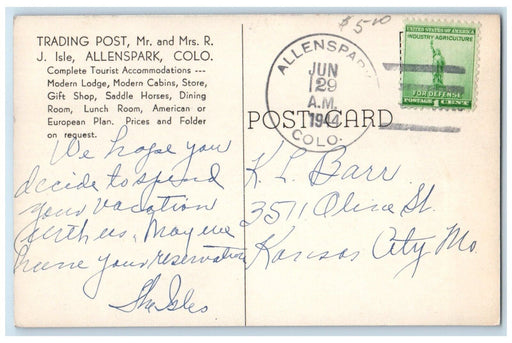 $5.00
TRADING POST, Mr. and Mrs. R.
J. Isle, ALLENSPARK, COLO.
Complete Tourist Accommodations ---
Modern Lodge, Modern Cabins, Store,
Gift Shop, Saddle Horses, Dining
Room, Lunch Room, American or
European Plan. Prices and Folder
on request.
We hope you
decide to spend
your vacation
with us. May we
have your reservation
The Isles
ALLENSPARK
JUN
29
A.M.
1944
COLO.
UNITED STATES OF AMERICA
INDUSTRY AGRICULTURE
FOR DEFENSE
POSTAGE 1 CENT
POST CARD
K. L. Barr
3511 Olive St.
Kansas City Mo